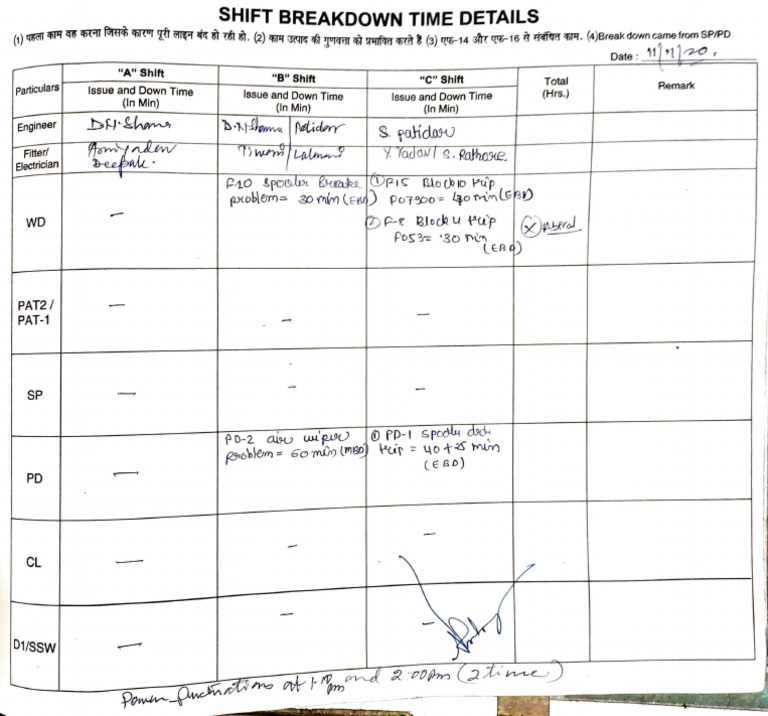 SHIFT BREAKDOWN TIME DETAILS
(1) पहला काम वह करना जिसके कारण पूरी लाइन बंद हो रही हो. (2) काम उत्पाद की गुणवत्ता को प्रभावित करते है (3) एफ-14 और एफ-16 से संबंधित काम. (4)Break down came from SP/PD
Date : 11/11/20.
Particulars "A" Shift "B" Shift "C" Shift Total (Hrs.) Remark
Issue and Down Time (In Min) Issue and Down Time (In Min) Issue and Down Time (In Min)
Engineer D.N.Sharma D.N Sharma / Patidar S. patidar
Fitter/ Electrician Deepak. Tiwari / Y. Yadav / S. Rathore.
WD –
F-10 Spooler Breake
problem = 30 min (EBD)
① F15 Block10 trip
P07900 = 40 min (EBD)
② F-8 Block 4 trip
F053 = 30 min
(EBD)
PAT2 / PAT-1 – – –
SP – – –
PD –
PD-2 air wiper
problem = 60 min (MBD)
① PD-1 Spooler
trip = 40 + 25 min
(EBD)
CL – – –
D1/SSW – – –
Power fluctuations at pm and 2.00pm (2 time)